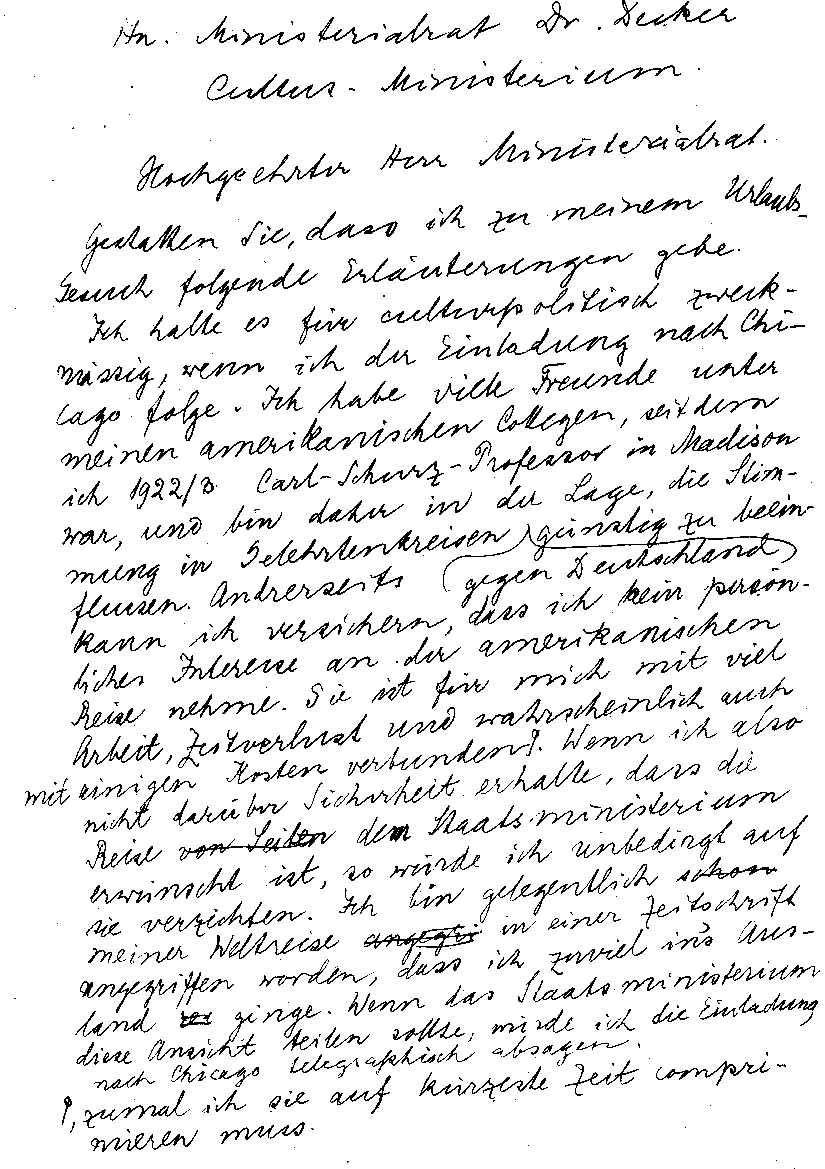 Hn. Ministerialrat Dr. Decker
Cultus-Ministerium.
Hochgeehrter Herr Ministerialrat.
Gestatten Sie, dass ich zu meinem Urlaubs-
Gesuch folgende Erläuterungen gebe.
Ich halte es für culturpolitisch zweck-
mässig, wenn ich der Einladung nach Chi-
cago folge. Ich habe viele Freunde unter
meinen amerikanischen Collegen, seitdem
ich 1922/3 Carl-Schurz-Professor in Madison
war, und bin daher in der Lage, die Stim-
mung in Gelehrtenkreisen günstig zu beein-
flussen. Andrerseits (gegen Deutschland)
kann ich versichern, dass ich kein persön-
liches Interesse an der amerikanischen
Reise nehme. Sie ist für mich mit viel
Arbeit, Zeitverlust und wahrscheinlich auch
mit einigen Kosten verbunden ?. Wenn ich also
nicht darüber Sicherheit erhalte, dass die
Reise von Seiten dem Staatsministerium
erwünscht ist, so würde ich unbedingt auf
sie verzichten. Ich bin gelegentlich schon
meiner Weltreise angegri in einer Zeitschrift
angegriffen worden, dass ich zuviel ins Aus-
land ginge. Wenn das Staatsministerium
diese Ansicht teilen sollte, würde ich die Einladung
nach Chicago telegraphisch absagen.
?, zumal ich sie auf kürzeste Zeit compri-
mieren muss.